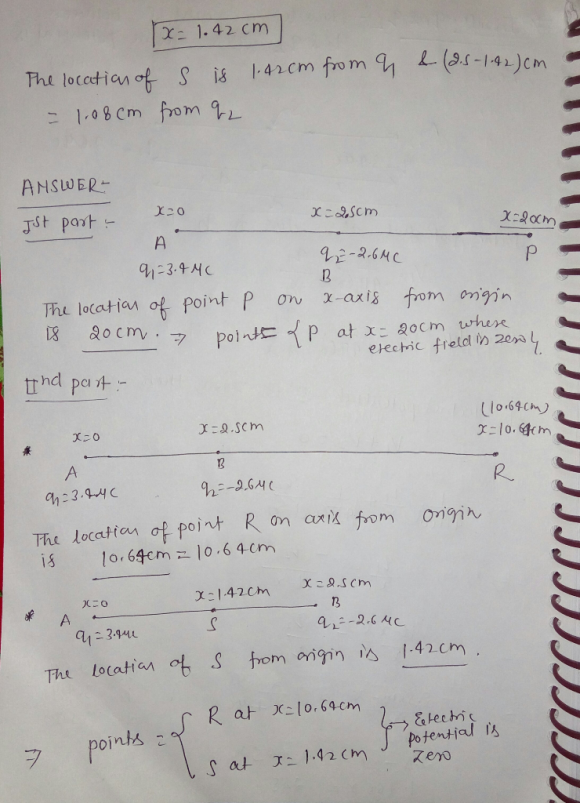 x = 1.42 cm
The location of S is 1.42cm from q1 & (2.5-1.42)cm
= 1.08cm from q2
ANSWER-
Ist part :-
x=0 x=2.5cm x=20cm
A P
q1=3.4 MC q2=-2.6MC
B
The location of point P on x-axis from origin
is 20cm. ⇒ points= {P at x= 20cm where
electric field is zero}.
IInd part :-
(10.64cm)
* x=0 x=2.5cm x=10.64cm
A B R
q1=3.4MC q2=-2.6MC
The location of point R on axis from origin
is 10.64cm = 10.64cm
* A x=0 x=1.42cm x=2.5cm
S B
q1=3.4MC q2=-2.6 MC
The location of S from origin is 1.42cm.
⇒ points = { R at x=10.64cm
S at x= 1.42cm } → Electric
potential is
zero